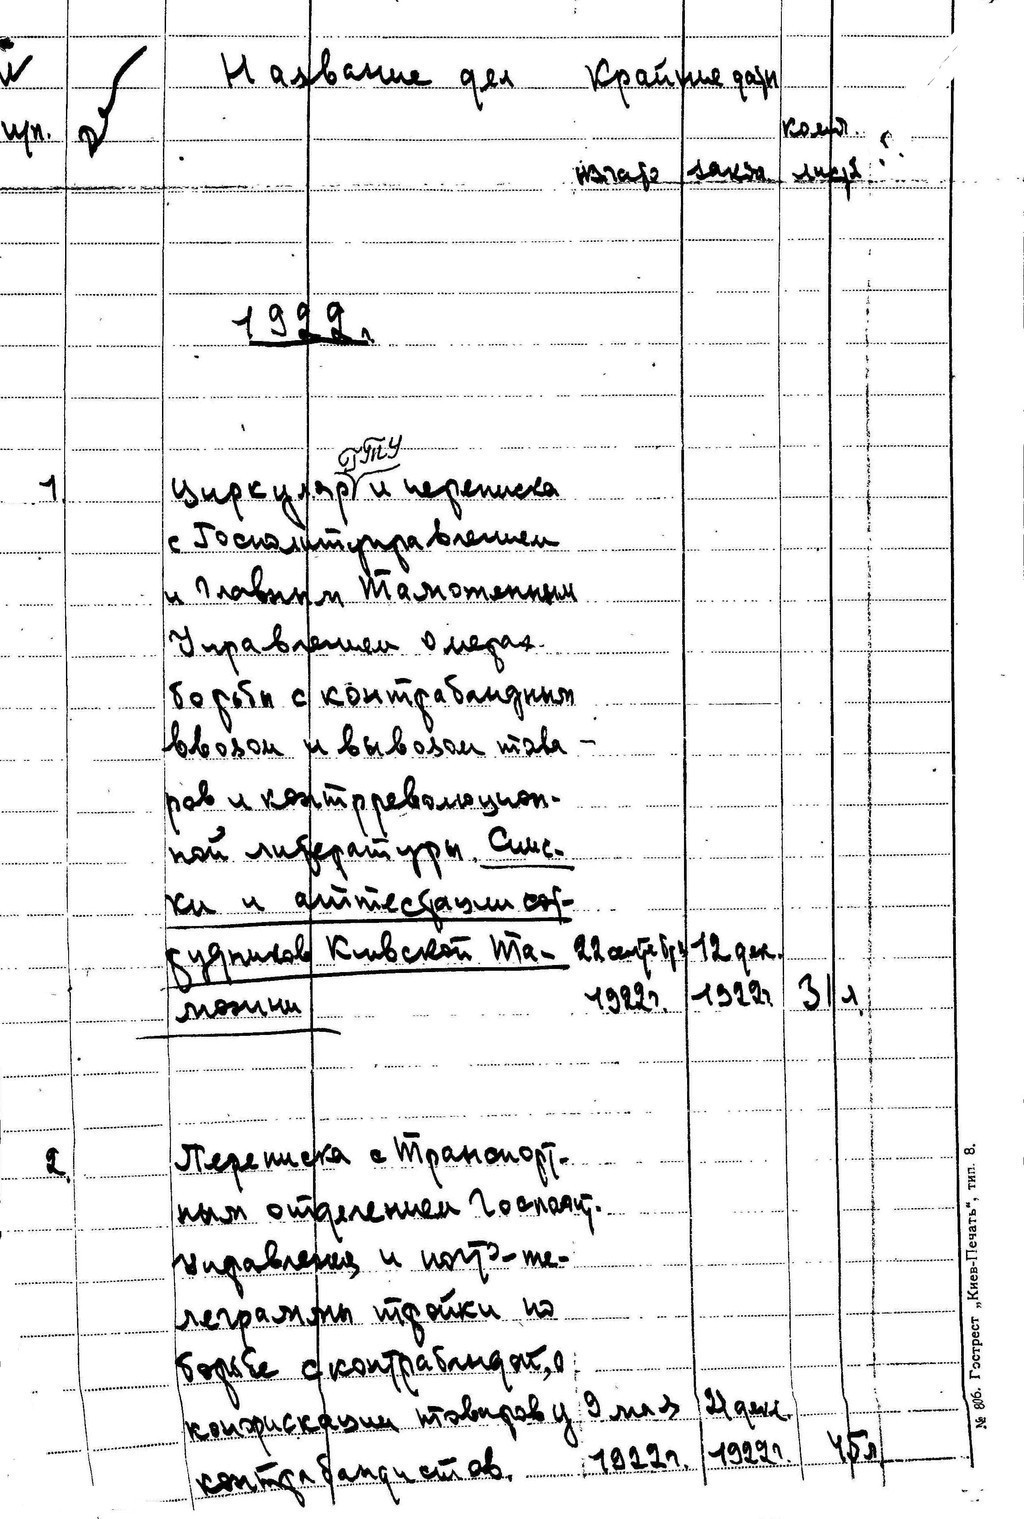 №
п/п.
Название дел
Крайние даты
колич.
начало
заключ.
листов
1922г.
ГПУ
1.
Циркуляр и переписка
с Госполитуправлением
и Главным Таможенным
Управлением о мерах
борьбы с контрабандным
ввозом и вывозом това-
ров и контрреволюцион-
ной литературы. Спис-
ки и аттестации сот-
рудников Киевской Та-
можни
22 1922г.
12 дек. 1922г.
31 л.
2.
Переписка с Транспорт-
ным отделением Госполит.
управления и почто-те-
леграммы тройки по
борьбе с контрабандой, о
конфискации товаров у
контрабандистов.
9 мая 1922г.
21 дек. 1922г.
45л
№ 806. Гострест „Киев-Печать“, тип. 8.